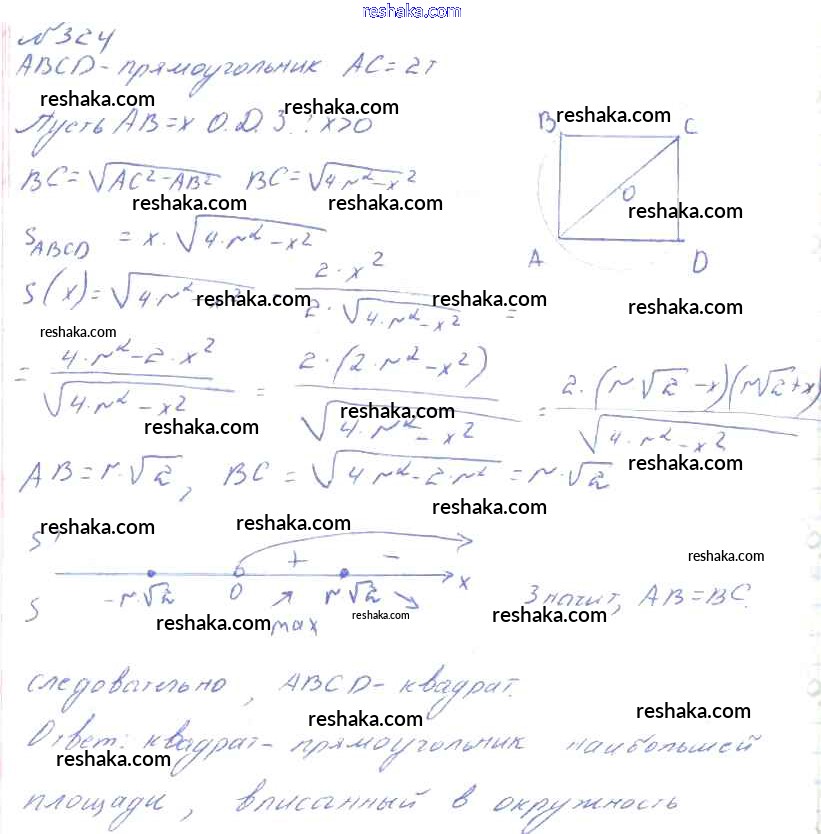 reshaka.com
№324
ABCD - прямоугольник AC = 2r
reshaka.com reshaka.com reshaka.com
Пусть AB = x О.Д.З.: x>0
B C
BC = √(AC² - AB²) BC = √(4·r² - x²)
reshaka.com reshaka.com reshaka.com
O
S ABCD = x·√(4·r² - x²)
A D
S(x) = √(4·r² - x²) 2·x² / 2·√(4·r² - x²) =
reshaka.com reshaka.com reshaka.com
reshaka.com
= (4·r² - 2·x²) / √(4·r² - x²) = 2·(2·r² - x²) / √(4·r² - x²) = 2·(r√2 - x)(r√2 + x) / √(4·r² - x²)
reshaka.com reshaka.com
AB = r·√2, BC = √(4r² - 2·r²) = r·√2
reshaka.com
reshaka.com reshaka.com reshaka.com
S' + -
reshaka.com
S -r·√2 0 r√2 x
max
Значит, AB = BC.
reshaka.com reshaka.com reshaka.com
следовательно, ABCD - квадрат.
reshaka.com reshaka.com
Ответ: квадрат - прямоугольник наибольшей
reshaka.com
площади, вписанный в окружность